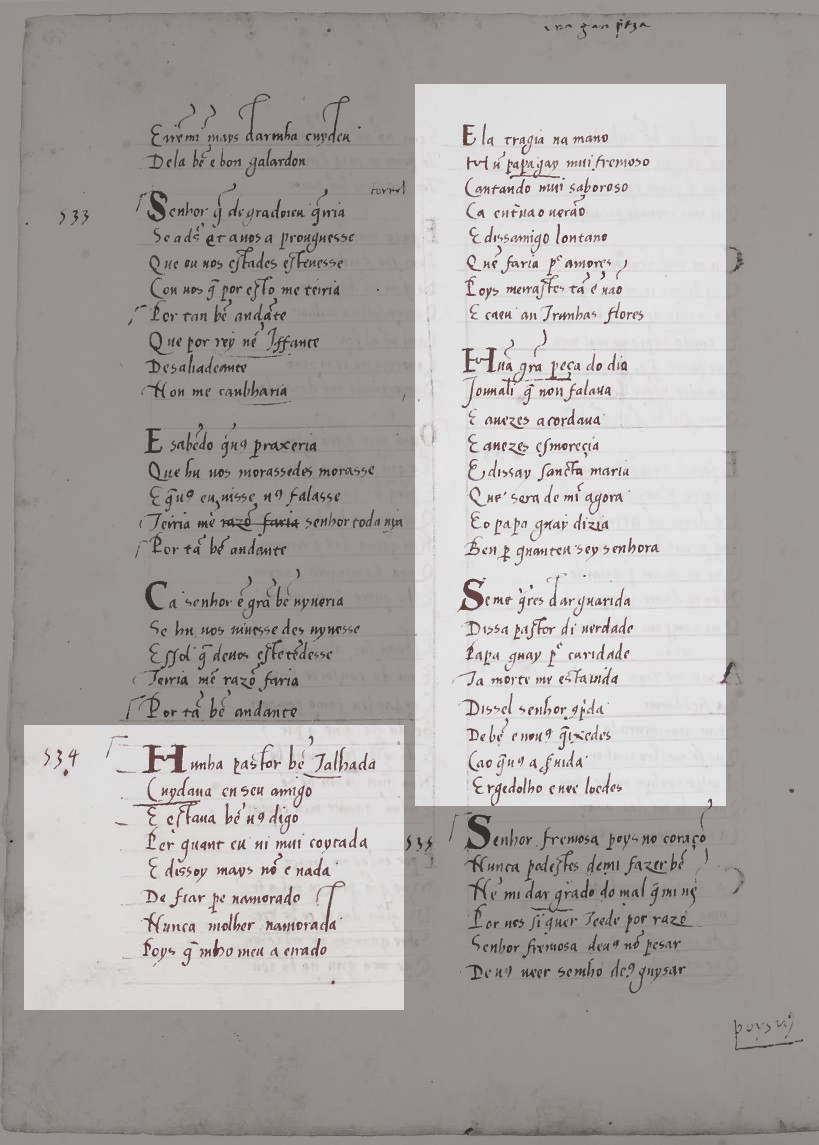 Eirem̃ mays darmha cuydeu
Dela bẽ e bon galardon
tornel
533
Senhor q̃ degradoieu q̃ria
Se ads̃ et auos a prouguesse
Que ou uos estades esteuesse
Con uos q̃ por esto me teiria
Por tan bẽ andãte
Que por rey nẽ Iffante
Desaliadeante
Non me canbharia
E sabẽdo q̃u9 praxeria
Que hu uos morassedes morasse
E q̃u9 euuisse u9 falasse
Teiria mẽ razõ faria senhor toda uja
Por tã bẽ andante
Ca senhor ẽ grã bẽ uyueria
Se hu uos uiuesse des uyuesse
Essol q̃ deuos estẽdesse
Teiria mẽ razõ faria
Por tã bẽ andante
534
Hunha pastor bẽ Talhada
Cuydaua en seu amigo
E estaua bẽ u9 digo
Per quant eu ui mui coytada
E dissoy mays nõ e nada
De fiar pe namorado
Nunca molher namorada
Poys q̃ mho meu a errado
E la tragia na mano
Hũ papagay mui fremoso
Cantando mui saboroso
Ca entraua o uerão
E dissamigo lontano
Quẽ faria p̃ amores
Poys meirastes tã ẽ uão
E caeu an Trunhas flores
Hũa grã peça do dia
Iouuali q̃ non falaua
E auezes acordaua
E auezes esmoreçia
E dissay sancta maria
Que sera de mĩ agora
Eo papa guay dizia
Ben p̃ quanteu sey senhora
Seme q̃res dar guarida
Dissa pastor di uerdade
Papa guay p̃ caridade
Ca morte me esta uida
Dissel senhor 9p̃da
De bẽ e nou9 q̃ixedes
Cao q̃u9 a fuida
Ergedolho e uee loedes
535
Senhor fremosa poys no coraçõ
Nunca podestes demi fazer bẽ
Nẽ mi dar grado do mal q̃ mi uẽ
Por uos siquer Teede por razõ
Senhor fremosa deu9 nõ pesar
De u9 ueer semho de9 guysar
poys u9